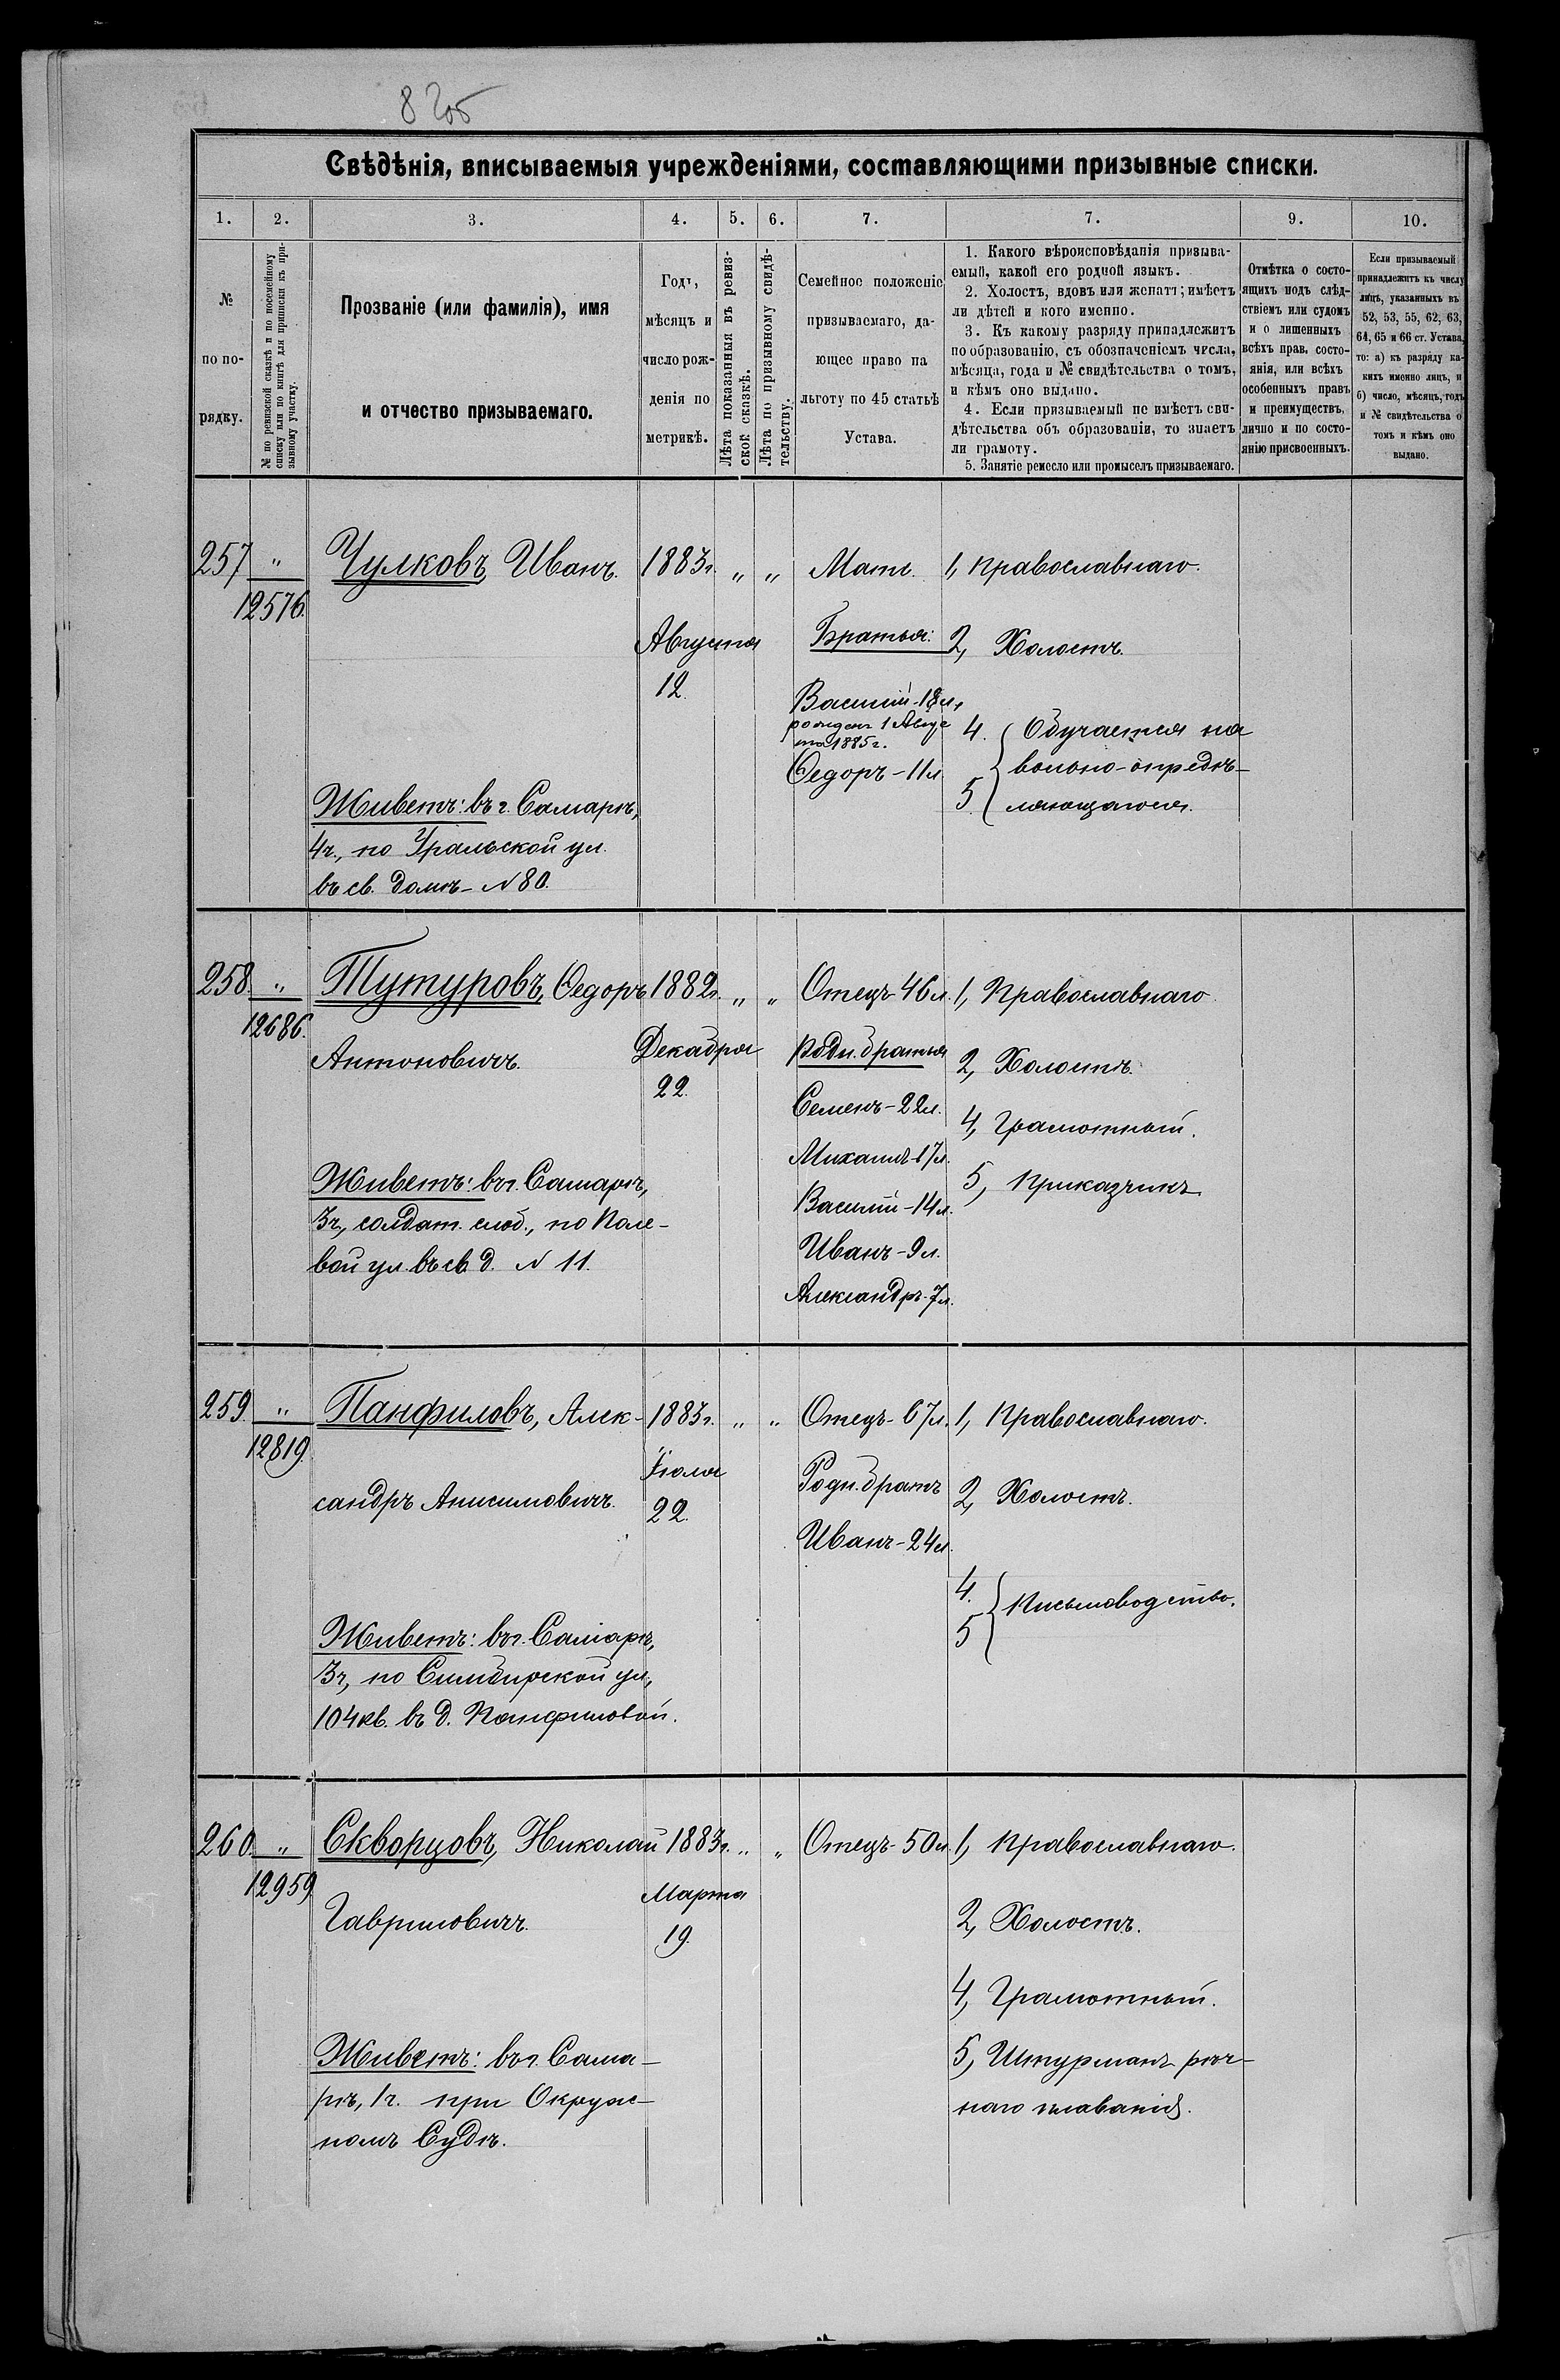 8 об
Свѣдѣнія, вписываемыя учрежденіями, составляющими призывные списки.
1. 2. 3. 4. 5. 6. 7. 7. 9. 10.
№
по по-
рядку.
№ по ревизской сказкѣ и по посемейному
списку или по книгѣ для приписки къ при-
зывному участку.
Прозваніе (или фамилія), имя
и отчество призываемаго.
Годъ,
мѣсяцъ и
число рож-
денія по
метрикѣ.
Лѣта показанныя въ ревиз-
ской сказкѣ.
Лѣта по призывному свидѣ-
тельству.
Семейное положеніе
призываемаго, да-
ющее право на
льготу по 45 статьѣ
Устава.
1. Какого вѣроисповѣданія призыва-
емый, какой его родной языкъ.
2. Холостъ, вдовъ или женатъ; имѣетъ
ли дѣтей и кого именно.
3. Къ какому разряду принадлежитъ
по образованію, съ обозначеніемъ числа,
мѣсяца, года и № свидѣтельства о томъ,
и кѣмъ оно выдано.
4. Если призываемый не имѣетъ сви-
дѣтельства объ образованіи, то знаетъ
ли грамоту.
5. Занятіе ремесло или промыселъ призываемаго.
Отмѣтка о состо-
ящихъ подъ слѣд-
ствіемъ или судомъ
и о лишенныхъ
всѣхъ прав. состо-
янія, или всѣхъ
особенныхъ правъ
и преимуществъ,
лично и по состо-
янію присвоенныхъ.
Если призываемый
принадлежитъ къ числу
лицъ, указанныхъ въ
52, 53, 55, 62, 63,
64, 65 и 66 ст. Устава,
то: а) къ разряду ка-
кихъ именно лицъ, и
б) число, мѣсяцъ, годъ
и № свидѣтельства о
томъ и кѣмъ оно
выдано.
257 "
12576.
Чулковъ, Иванъ.
Живетъ: въ г. Самарѣ,
4ч., по Уральской ул.
въ св. домѣ - N 80.
1883г. " "
Августа
12.
Мать.
Братья:
Василій - 18л.,
рожден 1 Авгус
та 1885 г.
Ѳедоръ - 11л
1, Православнаго.
2, Холостъ.
4. Обучается на
вольно-опредѣ-
5 ляющагося.
258. "
12686.
Тутуровъ, Ѳедоръ
Антоновичъ.
Живетъ: въ г. Самарѣ,
3ч, солдат. слоб., по Поле-
вой ул. въ св. д. N 11.
1882г. " "
Декабря
22.
Отецъ 46л.
Родн. братья
Семенъ - 22л.
Михаилъ - 17л.
Василій - 14л.
Иванъ - 9л.
Александръ - 7л.
1, Православнаго
2, Холостъ.
4, Грамотный.
5, Приказчикъ
259. "
12819.
Панфиловъ, Алек-
сандръ Анисимовичъ.
Живетъ: въ г. Самарѣ,
3ч, по Симбирской ул.,
104 кв. въ д. Панфиловой.
1883г. " "
Іюля
22.
Отецъ - 67л.
Родн. братъ
Иванъ - 24л.
1, Православнаго.
2, Холостъ.
4.
5 Письмоводство.
260. "
12959
Скворцовъ, Николай
Гавриловичъ.
Живетъ: въ г. Сама-
рѣ, 1ч. при Окруж-
номъ Судѣ.
1883г. " "
Марта
19.
Отецъ - 50л.
1, Православнаго.
2, Холостъ.
4, Грамотный.
5, Штурманъ рѣч-
наго плаванія.